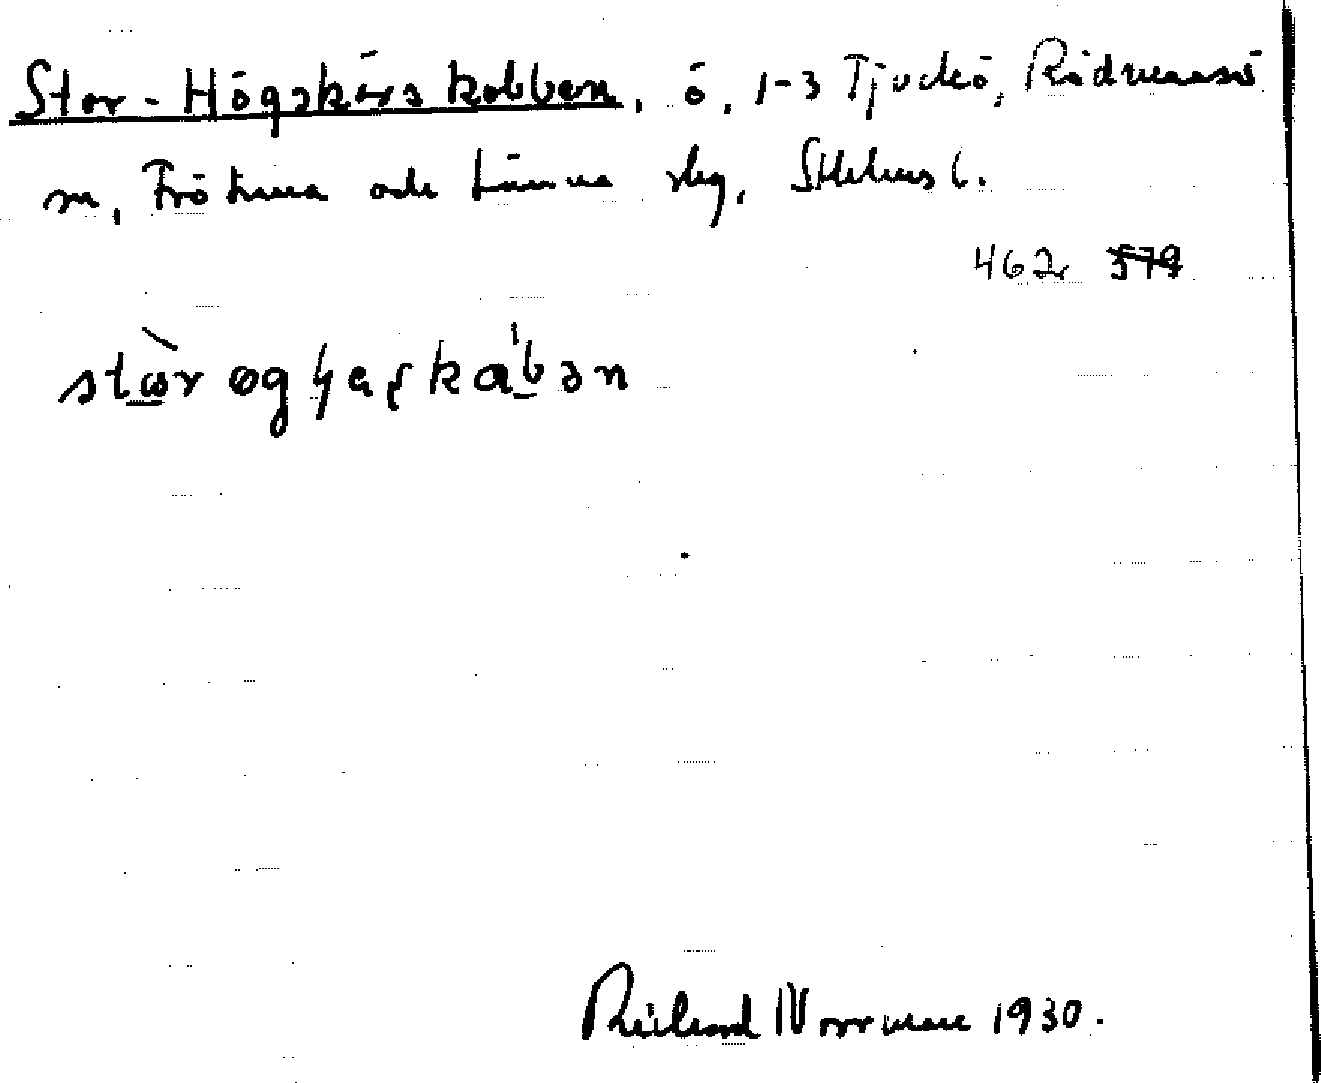 Stor-Högskärskobben, ö, 1-3 Tjockö, Rådmansö
sn, Frötuna och Länna slg, Sthlms l.
462 579
Rickard Norrman 1930.